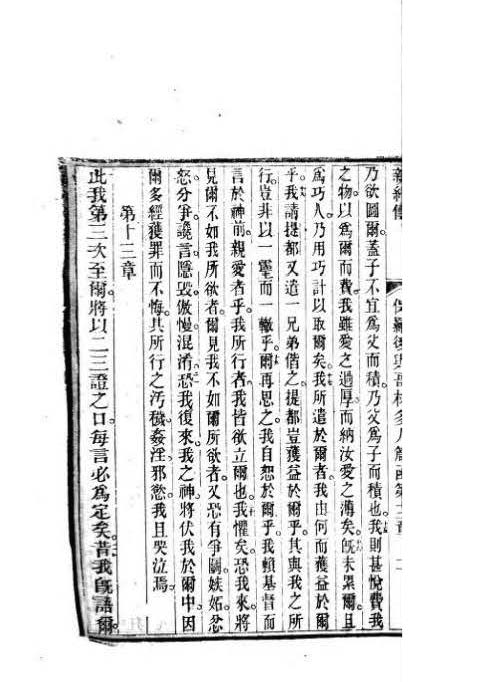 乃欲圖爾蓋子不宜為父而積乃父為子而積也我則甚悅費我
之物以為爾而費我雖愛之過厚而納汝愛之薄矣既未累爾且
為巧人乃用巧計以取爾矣我所遣於爾者我由何而獲益於爾
乎我請提都又遣一兄弟偕之提都豈獲益於爾乎其與我之所
行豈非以一靈而一轍乎爾再思之我自恕於爾乎我賴基督而
言於神前親愛者乎我所行者我皆欲立爾也我懼矣恐我來將
見爾不如我所欲者爾見我不如爾所欲者又恐有爭鬭嫉妬忿
怒分爭譏言隱毀傲慢混淆恐我復來我之神將伏我於爾中因
爾多經獲罪而不悔其所行之汚穢姦淫邪慾我且哭泣焉
第十三章
此我第三次至爾將以二三證之口每言必為定矣昔我既語爾